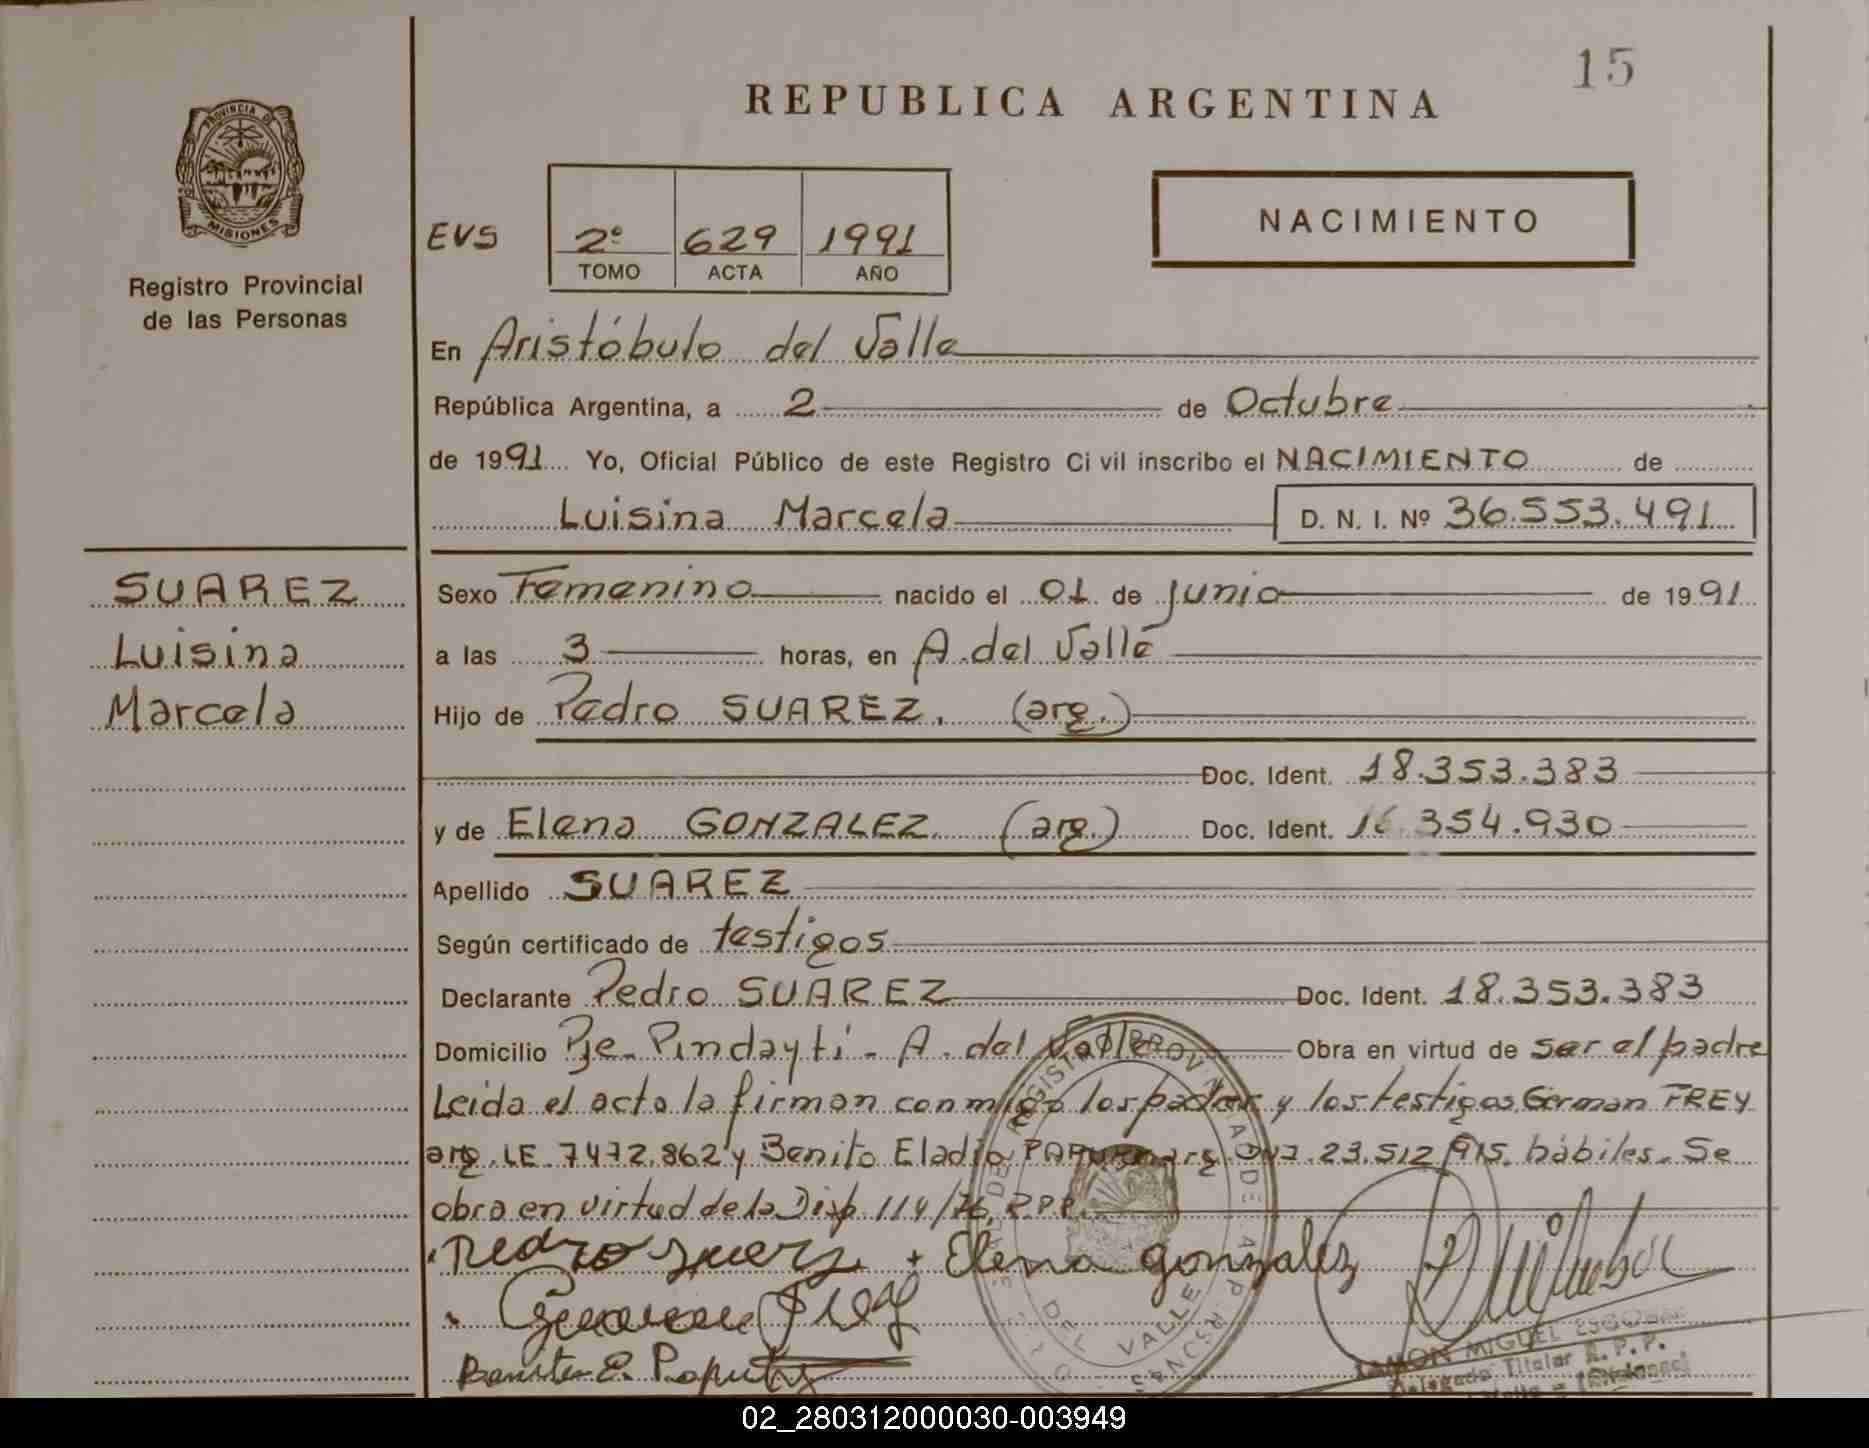 15
REPUBLICA ARGENTINA
PROVINCIA DE
MISIONES
Registro Provincial
de las Personas
NACIMIENTO
EVS 2º 629 1991
TOMO ACTA AÑO
En Aristóbulo del Valle
República Argentina, a 2 de Octubre
de 1991 Yo, Oficial Público de este Registro Civil inscribo el NACIMIENTO de
Luisina Marcela D. N. I. Nº 36.553.491
SUAREZ
Luisina
Marcela
Sexo Femenino nacido el 01 de junio de 1991
a las 3 horas, en A. del Valle
Hijo de Pedro SUAREZ. (arg.)
Doc. Ident. 18.353.383
y de Elena GONZALEZ. (arg.) Doc. Ident. 16.354.930
Apellido SUAREZ
Según certificado de testigos
Declarante Pedro SUAREZ Doc. Ident. 18.353.383
Domicilio Pje. Pindaytí - A. del Valle Obra en virtud de ser el padre
Leida el acta la firman conmigo los padres y los testigos German FREY
arg. LE. 7472.862 y Benito Eladio arg. 23.512.915. hábiles. Se
obra en virtud de la Disp. 114/76, R.P.P.
Pedro Suerz + Elena gonzalez
German Frey
Benito E.
DEL VALLE
RAMON MIGUEL ESCOBAR
Delegado Titular R. P. P.
02_280312000030-003949